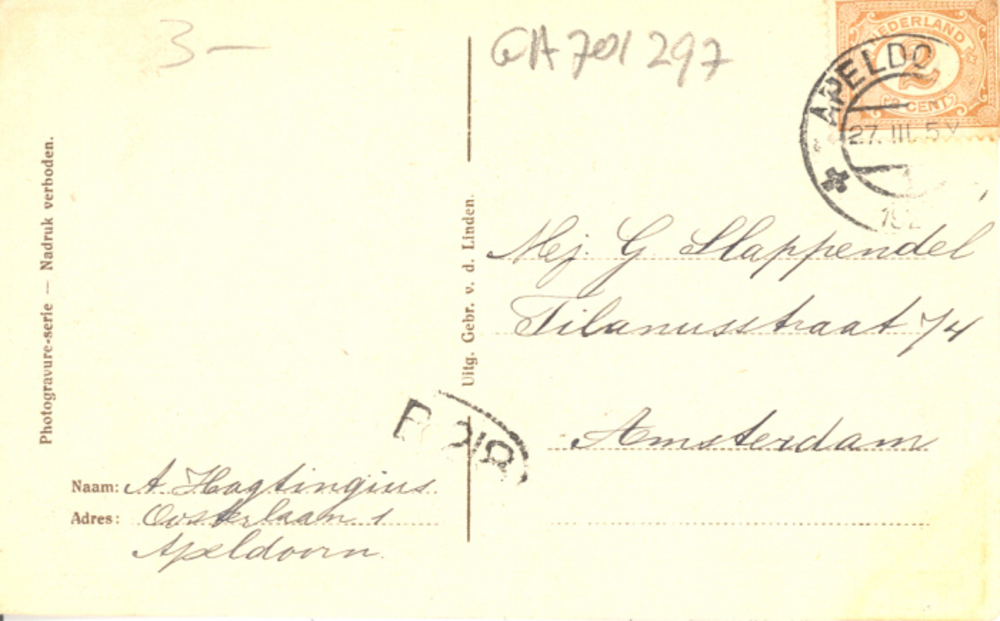 3 –
GA 701 297
NEDERLAND
2
2 CENT
APELDO
27. III. 5V
192
Photogravure-serie — Nadruk verboden.
Uitg. Gebr. v. d. Linden.
Mej. G Slappendel
Tilanusstraat 74
Amsterdam
Naam: A. Hagtingius
Adres: Oosterlaan 1
Apeldoorn.